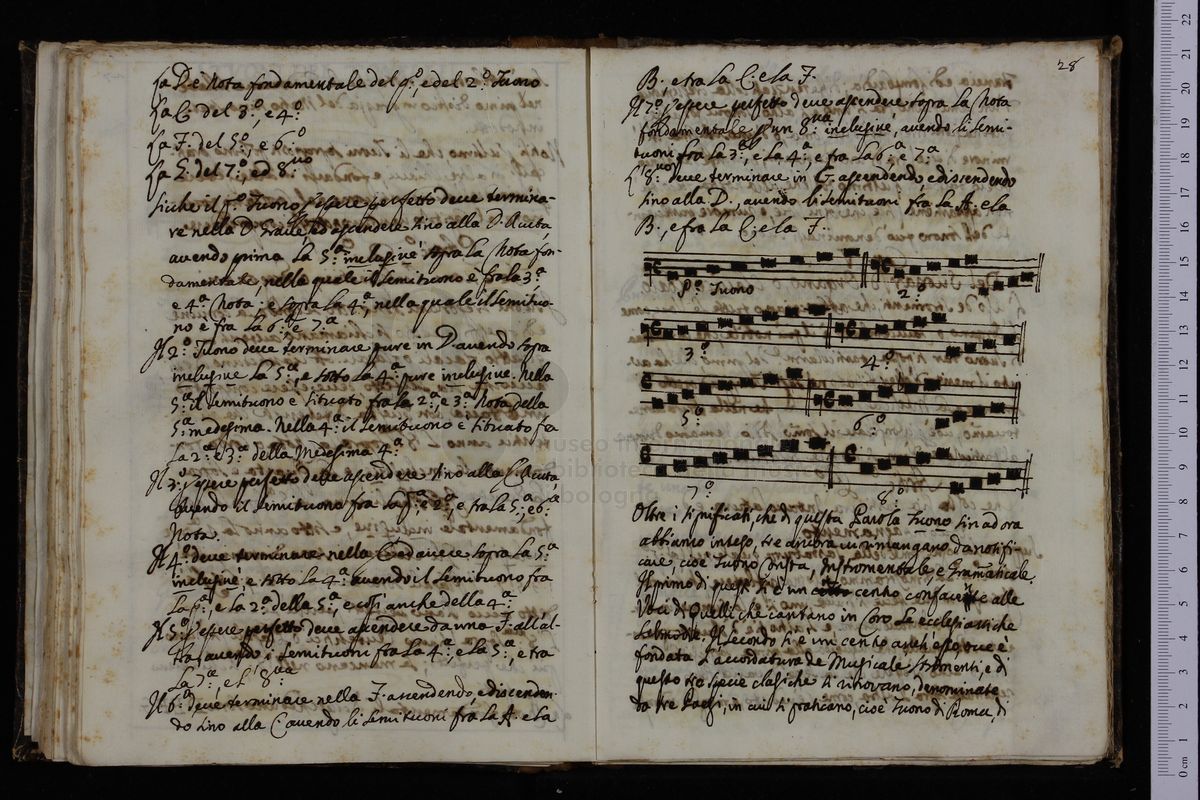 La D. è Nota fondamentale del p:º, e del 2:º Tuono
La C. del 3:º, e 4:º
La F. del 5:º, e 6:º
La G. del 7:º, ed 8:vo
Sicche il p:º Tuono p essere perfetto deve termina-
re nella D. Grave, ed ascendere sino alla D. Acuta
avendo prima la 5:ª inclusive sopra la Nota fon-
damentale, nella quale il Semituono è fra la 3:ª
e 4:ª Nota: e sopra la 4:ª, nella quale il Semituo-
no è fra la 6:ª e 7:ª
Il 2:º Tuono deve terminare pure in D. avendo sopra
inclusive la 5:ª, e sotto la 4:ª pure inclusive. Nella
5:ª il Semituono è situato fra la 2:ª, e 3:ª Nota della
5:ª medesima. Nella 4:ª il Semituono è situato fa
la 2:ª e 3:ª della Medesima 4:ª
Il 3:º p essere perfetto deve ascendere sino alla C. Acuta,
avendo il Semituono fra la p:ª e 2:ª, e fra la 5:ª, e 6:ª
Nota.
Il 4:º deve terminare nella C ed avere sopra la 5:ª
inclusive, e sotto la 4:ª avendo il Semituono fra
la p:ª, e la 2:ª della 5:ª, e così anche della 4:ª
Il 5:º p essere perfetto deve ascendere da una F. all'al-
tra, avendo i Semituoni fra la 4:ª, e la 5:ª, e tra
la 7:ª, e l' 8:va
Il 6:º deve terminare nella F. ascendendo e discenden-
do sino alla C avendo li Semituoni fra la A. e la
28
B., e tra la C. e la F.
Il 7:º p essere perfetto deve ascendere sopra la Nota
fondamentale p un 8:va inclusive, avendo li Semi-
tuoni fra la 3:ª, e la 4:ª, e fra la 6:ª e 7:ª
L' 8:vo deve terminare in G. ascendendo, e discendendo
sino alla D., avendo li Semituoni fra la A. e la
B., e fra la C. e la F.
P:º Tuono 2:º
3:º 4:º
5:º 6:º
7:º 8:º
Oltre i significati, che di questa Parola Tuono sin ad ora
abbiamo inteso, tre ancora ci rimangano da notifi-
care, cioè Tuono Corista, Instromentale, e Gramaticale.
Il primo di questi si è un certo cento confacente alle
Voci di quelli che cantano in Coro le ecclesiastiche
Salmodie. Il secondo si è un cento anch'esso, ove è
fondata l'accordatura de Musicale Stromenti, e di
questo tre specie classiche si ritrovano, denominate
da tre Paesi, in cui si praticano, cioè Tuono di Roma, di
museo
biblioteca
bologna
22 21 20 19 18 17 16 15 14 13 12 11 10 9 8 7 6 5 4 3 2 1 0 cm